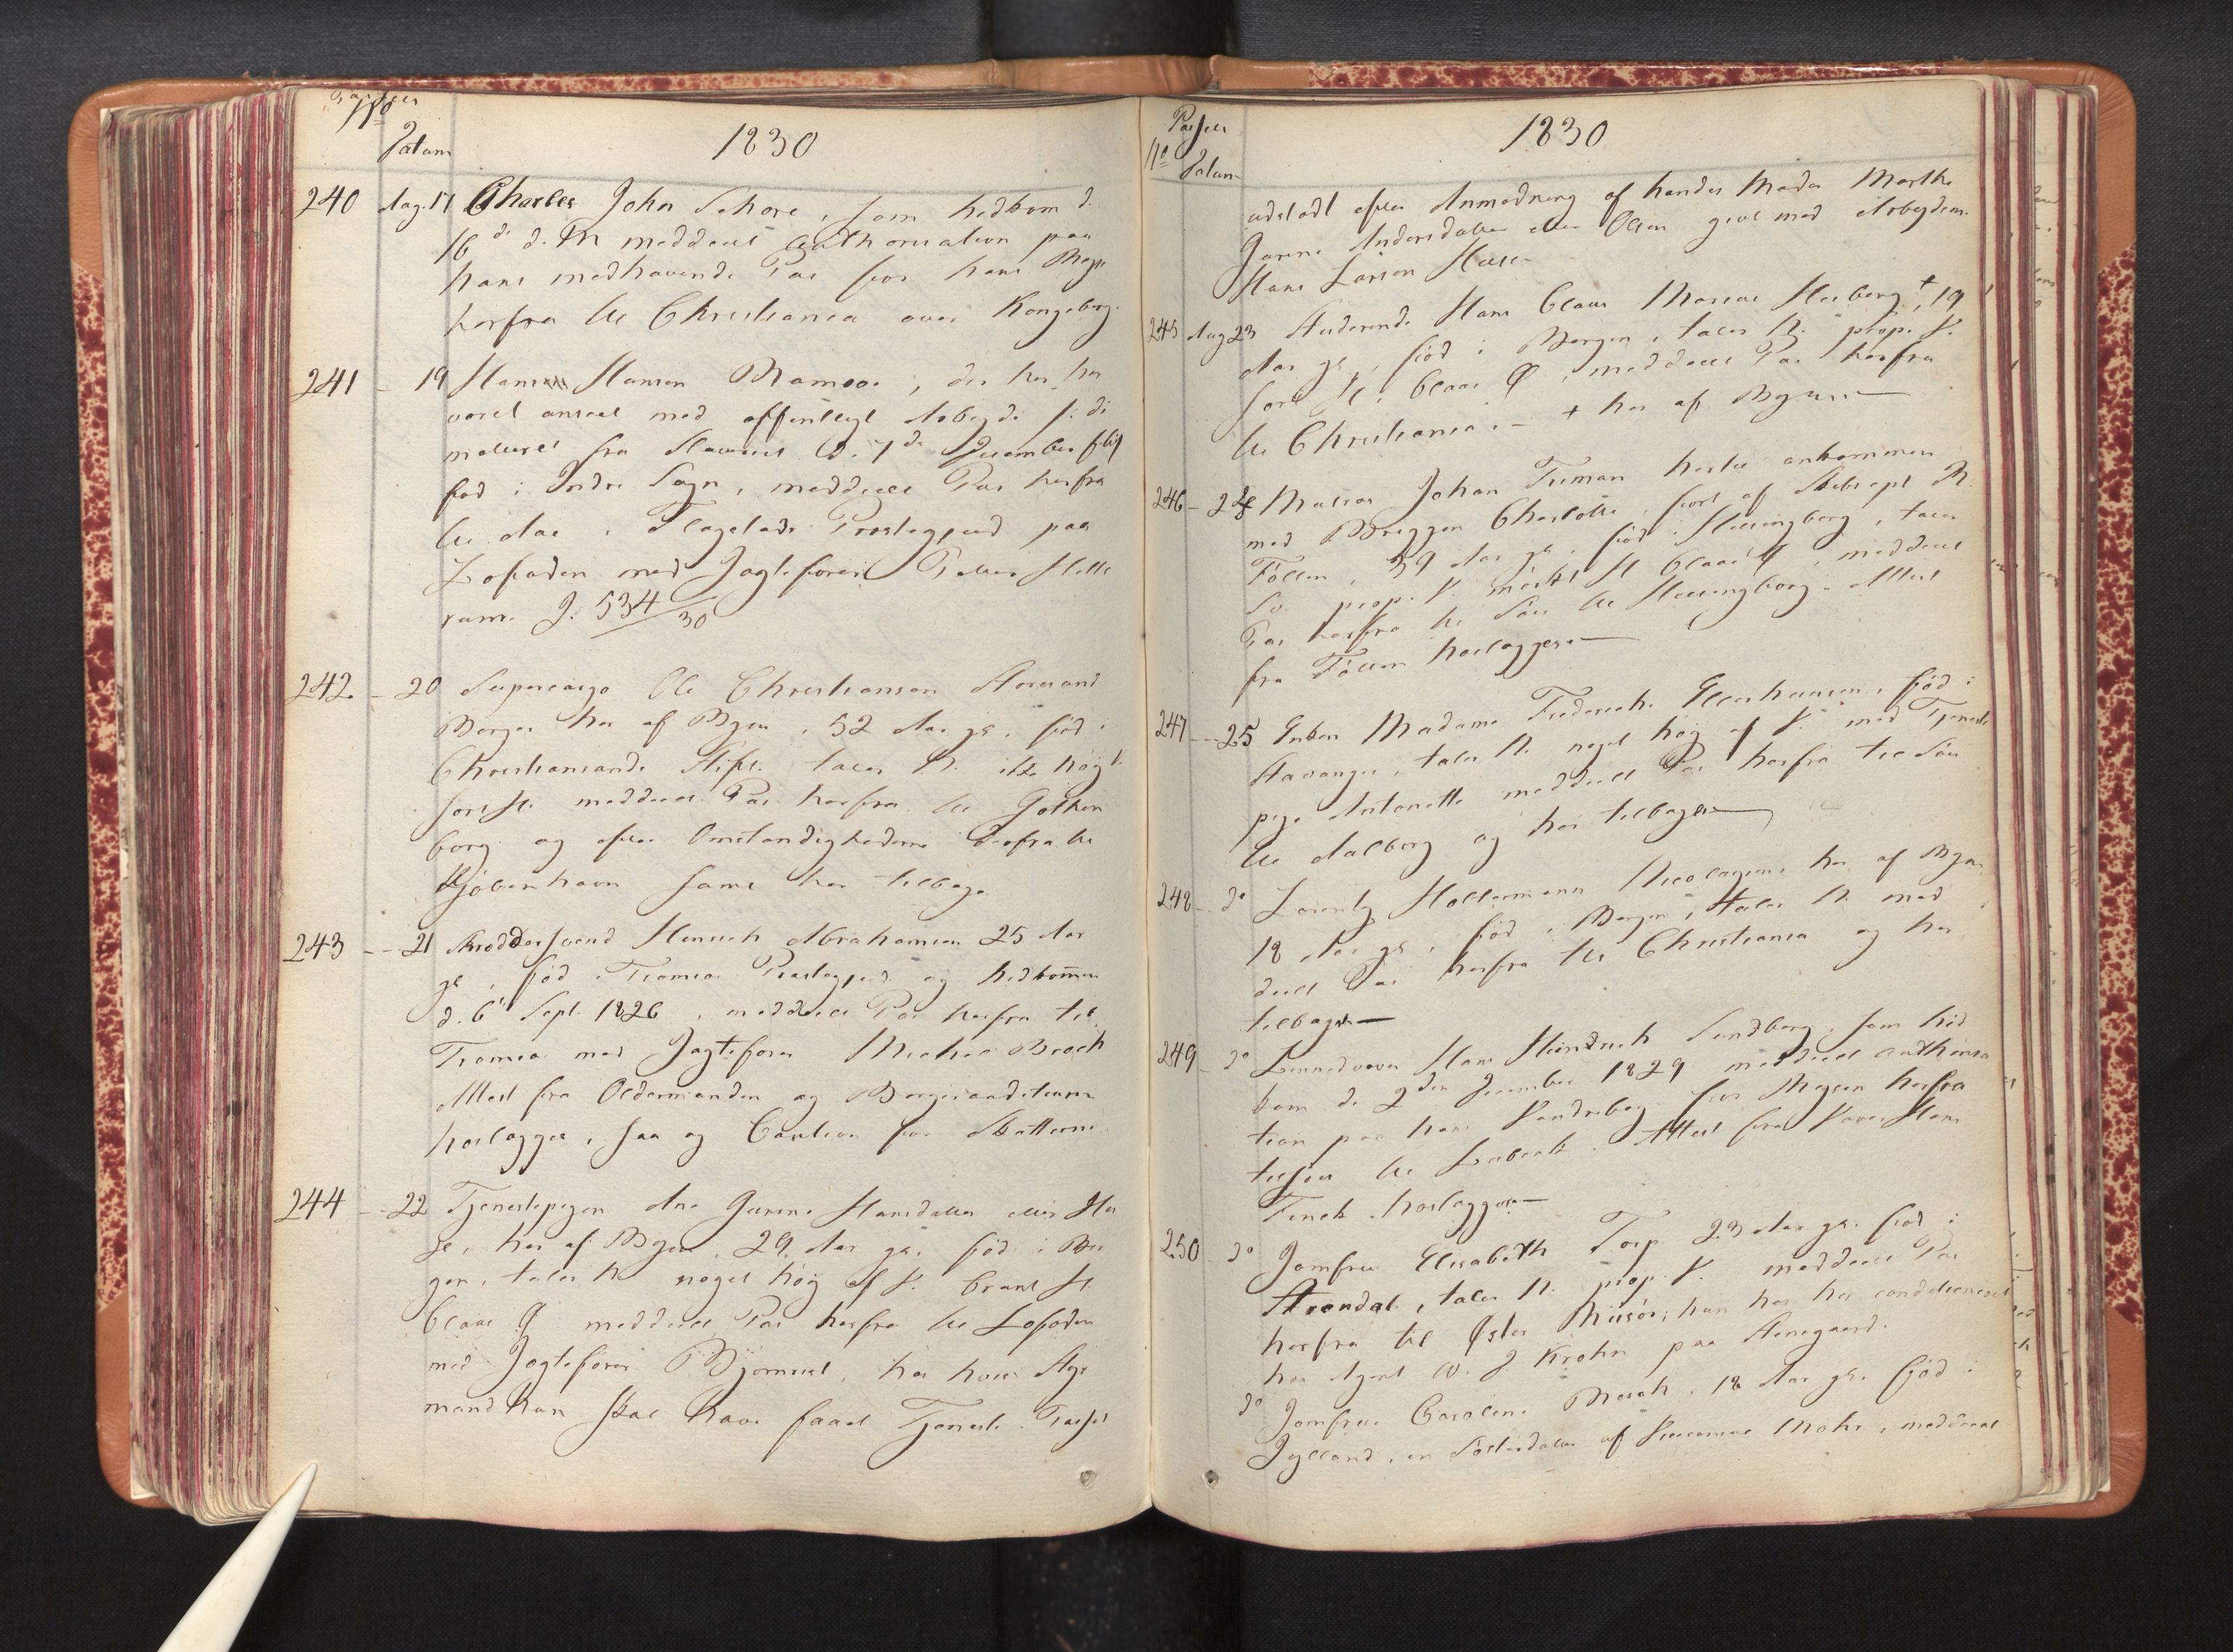 Passer
No
Datum
1830
240 Aug. 17 Charles John Schore, som hidkom d.
16de d. M meddeelt Authorisation paa
hans medhavende Pas for hans Reise
herfra til Christiania over Kongsberg.
241 - 19 Hans Hansen Ramsøe, der her har
været anseet med offentligt Arbeyde
fra Slaveriet d. 7de December
fød i Indre Sogn, meddeelt Pas herfra
til Aae i Flagstads Præstegjeld paa
Lofoden med Jagtefører Peder
J: 534/30
242 - 20 Supercargo Ole Christiansen
Borger her af Byen, 52 Aar gl, fød i
Christiansands Stift. taler N. ikke høyt
sort H. meddeelt Pas herfra til Gothen
borg og efter Omstændighederne derfra til
Kjøbenhavn samt her tilbage.
243 - 21 Skrædersvend Henrich Abrahamsen 25 Aar
gl, fød i Tromsøe Præstegjeld og hidkommen
d. 6te Sept. 1826, meddeelt Pas herfra til
Tromsøe med Jagtefører Michael Brock
Attest fra Oldermanden og Borgeraadsteuren
hoslægger, saa og Caution for Skatterne.
244 - 22 Tjenestepigen Ane Gurine Hansdatter eller
her af Byen, 29 Aar gl, fød i Ber
gen, taler N. noget høy af V. bruunt H.
blaae Ø meddeelt Pas herfra til Lofoden
med Jagtefører Bjørnset, hos hvis Styr
mand hun skal have faaet Tjeneste. Passet
Passer
No
Datum
1830
udstædt efter Anmodning af hendes Moder Marthe
Jorine Andersdatter eller Olsen givt med Arbeydsm.
Hans Larsen
245 Aug 23 Studerende Hans Claus Marius Herberg +, 19
Aar gl, fød i Bergen, taler N. prop. V.
sort H, blaae Ø, meddeelt Pas herfra
til Christiania. - + her af Byen
246 - 24 Matros Johan Truman hertil ankommen
med Briggen Charlotte, ført af Skibscapt R.
Føllen, 39 Aar gl, fød i Helsingborg, taler
Sv. prop. V. mørkt H blaae Ø, meddeelt
Pas herfra til Søes til Helsingborg. Attest
fra Føllen hoslægger
247 - 25 Enken Madame Frederiche Ellerhusen, fød i
Stavanger, taler N. noget høy af V. med Tjeneste
pige Antonette meddeelt Pas herfra til Søes
til Aalborg og her tilbage
248 - do Lorentz Holtermann Nicolaysen, her af Byen
18 Aar gl, fød i Bergen, taler N. med
deelt Pas herfra til Christiania og her
tilbage
249 do Linnedvæver Hans Heindrich Sundberg, som hid
kom d. 2den December 1829 meddeelt Authorisa
tion paa hans Vandrebog for Reysen herfra
tilsøes til Lübeck. Attest fra Væver Hans
Finck hoslægger
250 do Jomfrue Elisabeth Torp 23 Aar gl. fød i
Arendal, taler N. prop. V. meddeelt Pas
herfra til Øster Riisøer; hun har her conditioneret
hos Agent W. J. Krohn paa Steregaard.
do Jomfrue Caroline Rasch, 18 Aar gl, fød i
Jylland, en Søsterdatter af Mohr, meddeelt